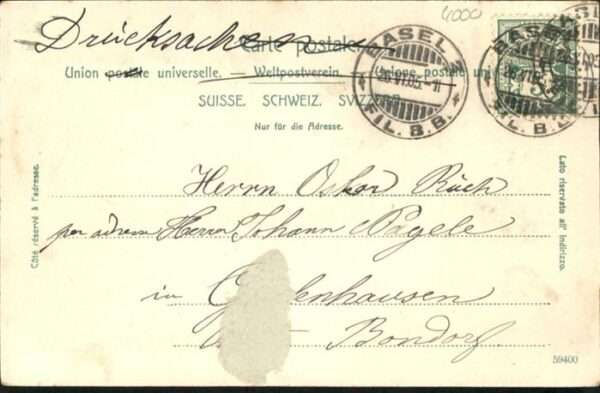 4000
Drucksache
Carte postale.
Union postale universelle. — Weltpostverein. — Unione postale
SUISSE. SCHWEIZ. SVIZZERA.
Nur für die Adresse.
BASEL 2
26.VI.05.-11
FIL. B.B.
BASEL
FIL. B.
5
Côté réservé à l'adresse.
Lato riservato all' indirizzo.
Herrn Oskar Rück
per adresse Herrn Johann Nägele
in
Bondorf
59400